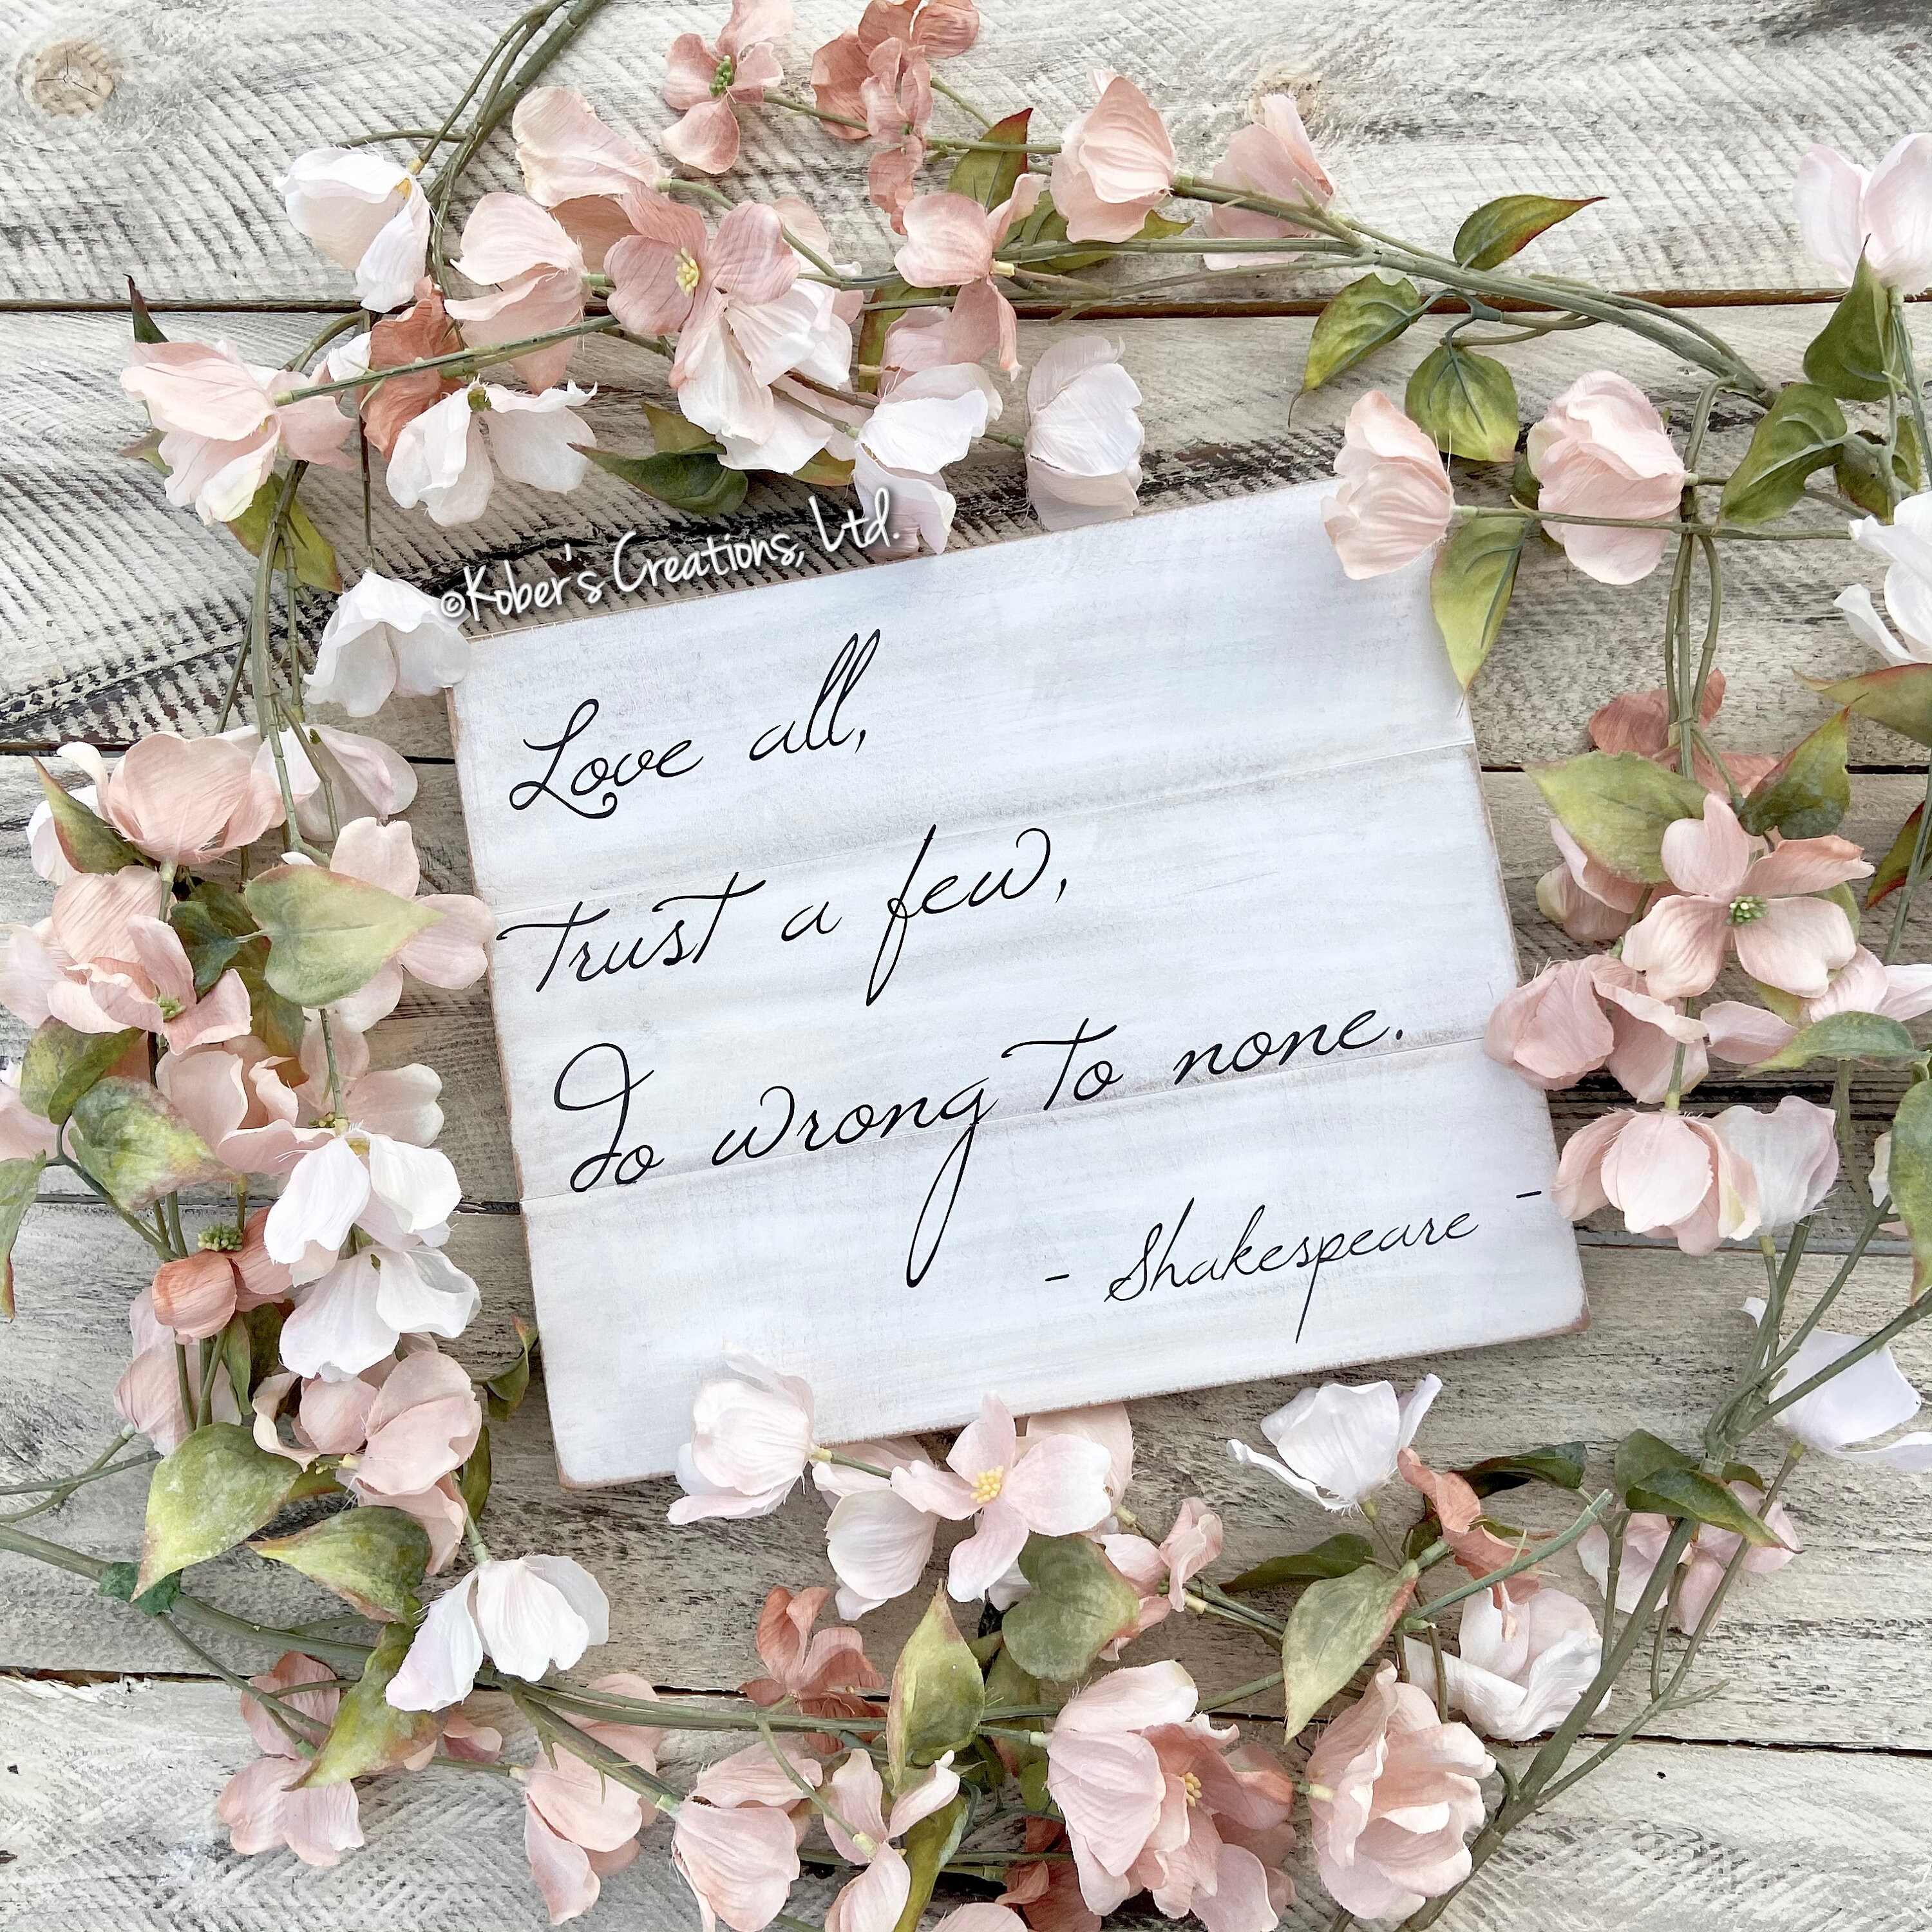 ©Kober's Creations, Ltd.
Love all,
trust a few,
Do wrong to none.
- Shakespeare -